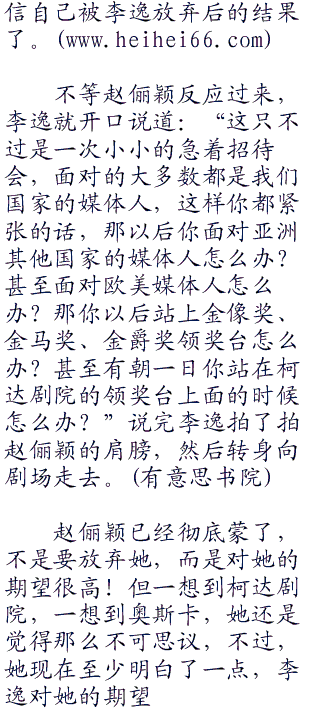 信自己被李逸放弃后的结果
了。(www.heihei66.com)
不等赵俪颖反应过来，
李逸就开口说道：“这只不
过是一次小小的急着招待
会，面对的大多数都是我们
国家的媒体人，这样你都紧
张的话，那以后你面对亚洲
其他国家的媒体人怎么办？
甚至面对欧美媒体人怎么
办？那你以后站上金像奖、
金马奖、金爵奖领奖台怎么
办？甚至有朝一日你站在柯
达剧院的领奖台上面的时候
怎么办？”说完李逸拍了拍
赵俪颖的肩膀，然后转身向
剧场走去。(有意思书院)
赵俪颖已经彻底蒙了，
不是要放弃她，而是对她的
期望很高！但一想到柯达剧
院，一想到奥斯卡，她还是
觉得那么不可思议，不过，
她现在至少明白了一点，李
逸对她的期望